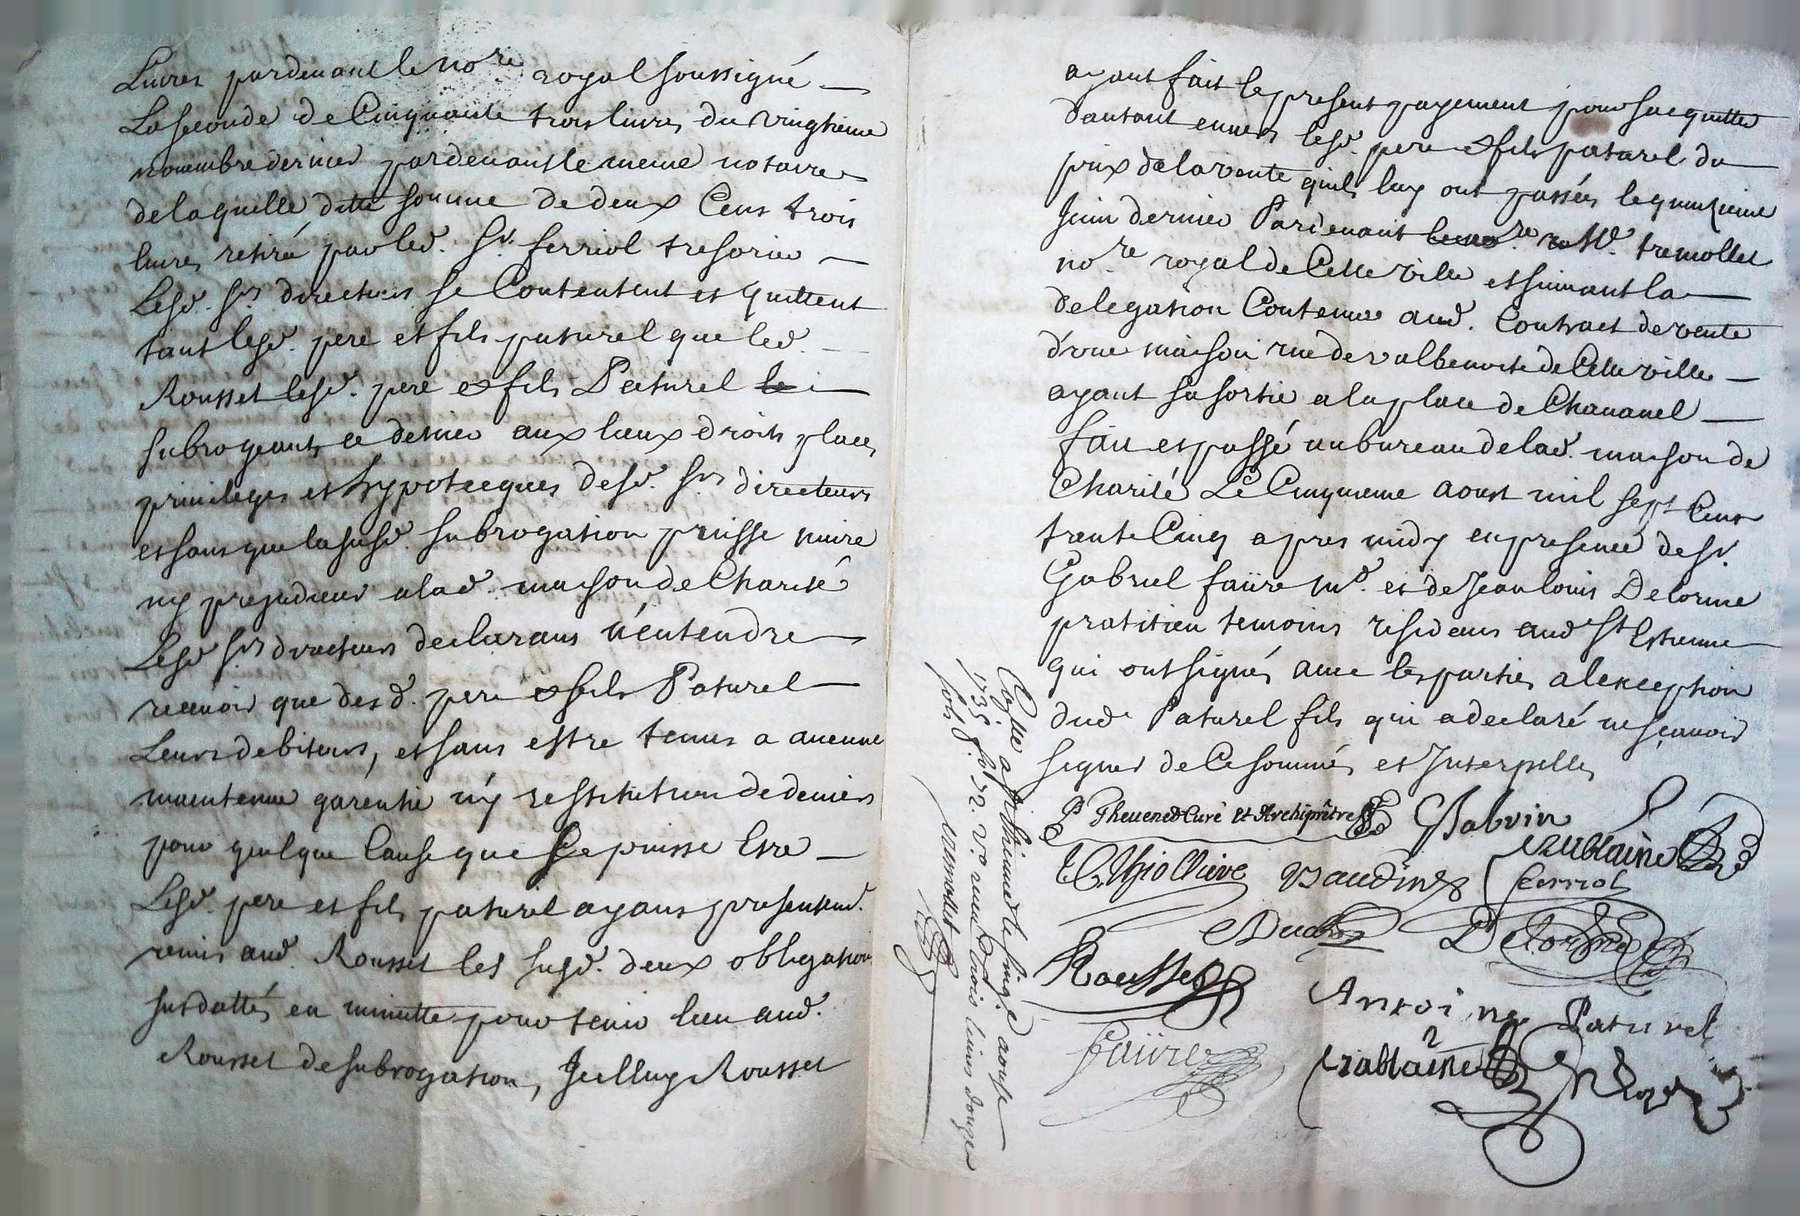 Livres pardevant le no.re royal soussigné
La seconde de Cinquante trois livres du vingtieme
novembre dernier pardevant le meme notaire
de laquelle ditte somme de deux Cens trois
livres retiré par led. Sr. ferriol tresorier
Lesd. srs directeurs se Contentent et quittent
tant lesd. pere et fils paturel que led.
Rousset lesd. pere et fils Paturel
subrogeants ce dernier aux lieux droits places
privileges et hypotecques desd. srs directeurs
et sans que la susd. subrogation puisse nuire
ny prejudicier a lad. maison de Charité
Lesd srs directeurs declarans n'entendre
recevoir que desd. pere et fils Paturel
Leurs debiteurs, et sans estre tenus a aucune
maintenue garentie ny restitution de deniers
pour quelque Cause que Ce puisse Estre
Lesd. pere et fils paturel ayans presentemt.
remis aud. Rousset les susd. deux obligations
susdattés en minutte pour tenir lieu aud.
Rousset de subrogation, Icelluy Rousset
ayant fait le present payement pour s'acquitter
d'autant envers lesd. pere et fils paturel du
prix de la vente quils luy ont passés le quinzieme
Juin dernier Pardevant Me. tremollet
no.re royal de Cette ville et suivant la
delegation Contenue aud. Contract de vente
d'une maison rue de valbenoite de Cette ville
ayant sa sortie a la place de Chavanel
fait et passé au bureau de lad. maison de
Charité Le Cinquieme aoust mil sept Cens
trente Cinq apres midy en presence de sr.
Gabriel faüre md. et de Jean louis Delorme
pratitien temoins residens aud St Estienne
qui ont signés avec les parties a l'exception
dud Paturel fils qui a declaré ne sçavoir
signer de Ce sommés et Interpellés
Thevenet Curé et Archiprêtre
Vaudin
ferriol
Delorme
Rousset
Antoine Paturel
faüre
Cotté a St Estienne le cinq aoust
1735 fo. 72. vo. receu trois livres douze
sols
tremollet